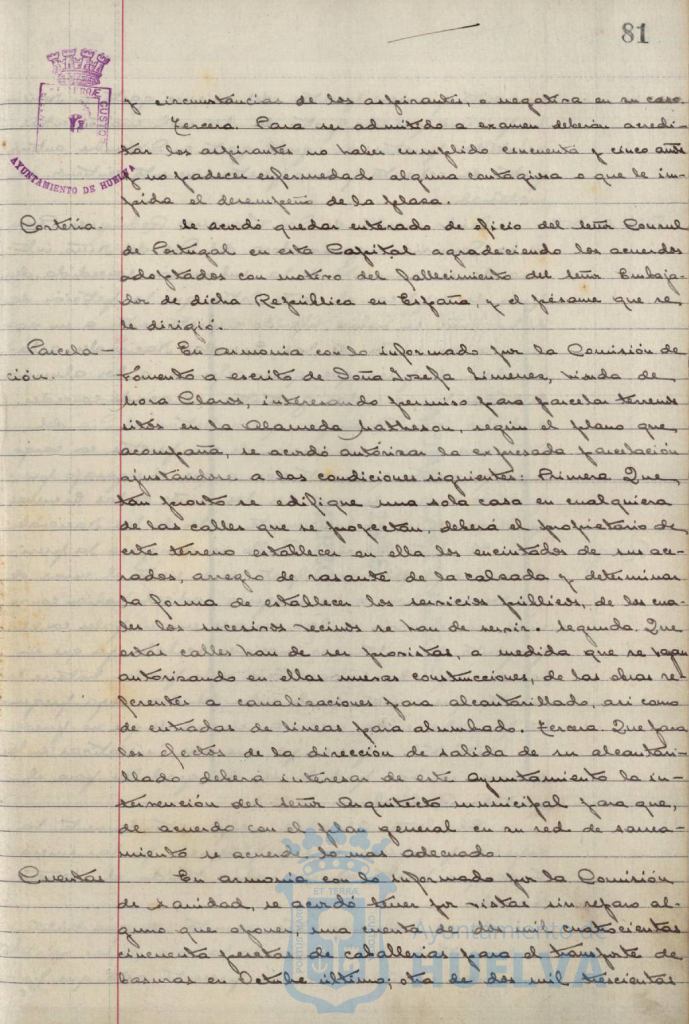 81
PORTUS MARIS ET TERRÆ CUSTODIA
AYUNTAMIENTO DE HUELVA
y circunstancias de los aspirantes, o negativa en su caso.
Tercera. Para ser admitido a examen deberán acredi-
tar los aspirantes no haber cumplido cincuenta y cinco años
y no padecer enfermedad alguna contagiosa o que le im-
pida el desempeño de la plasa.
Cortesia. Se acordó quedar enterado de oficio del señor Consul
de Portugal en esta Capital agradeciendo los acuerdos
adoptados con motivo del fallecimiento del señor Embaja-
dor de dicha República en España, y el pésame que se
le dirigió.
Parcela- En armonia con lo informado por la Comisión de
ción. Fomento a escrito de Doña Josefa Jimenez, viuda de
Mora Claros, interesando permiso para parcelar terrenos
sitos en la Alameda Matheson, según el plano que
acompaña, se acordó autorizar la expresada parcelación
ajustándose a las condiciones siguientes: Primera Que
tan pronto se edifique una sola casa en cualquiera
de las calles que se proyectan, deberá el propietario de
este terreno establecer en ella los encintados de sus ace-
rados, arreglo de rasante de la calsada y determinar
la forma de establecer los servicios públicos, de los cua-
les los sucesivos vecinos se han de servir. Segunda. Que
estas calles han de ser provistas, a medida que se vayan
autorizando en ellas nuevas construcciones, de las obras re-
ferentes a canalizaciones para alcantarillado, asi como
de entradas de lineas para alumbado. Tercera. Que para
los efectos de la dirección de salida de su alcantari-
llado deberá interesar de este Ayuntamiento la in-
tervención del señor Arquitecto municipal para que,
de acuerdo con el plan general en su red de sanea-
miento se acuerde lo mas adecuado.
Cuentas En armonia con lo informado por la Comisión
de Sanidad, se acordó tener por vistas sin reparo al-
guno que oponer, una cuenta de dos mil cuatrocientas
cincuenta pesetas de caballerias para el transporte de
basuras en Octubre último; otra de dos mil trescientas
Ayuntamiento de
HUELVA